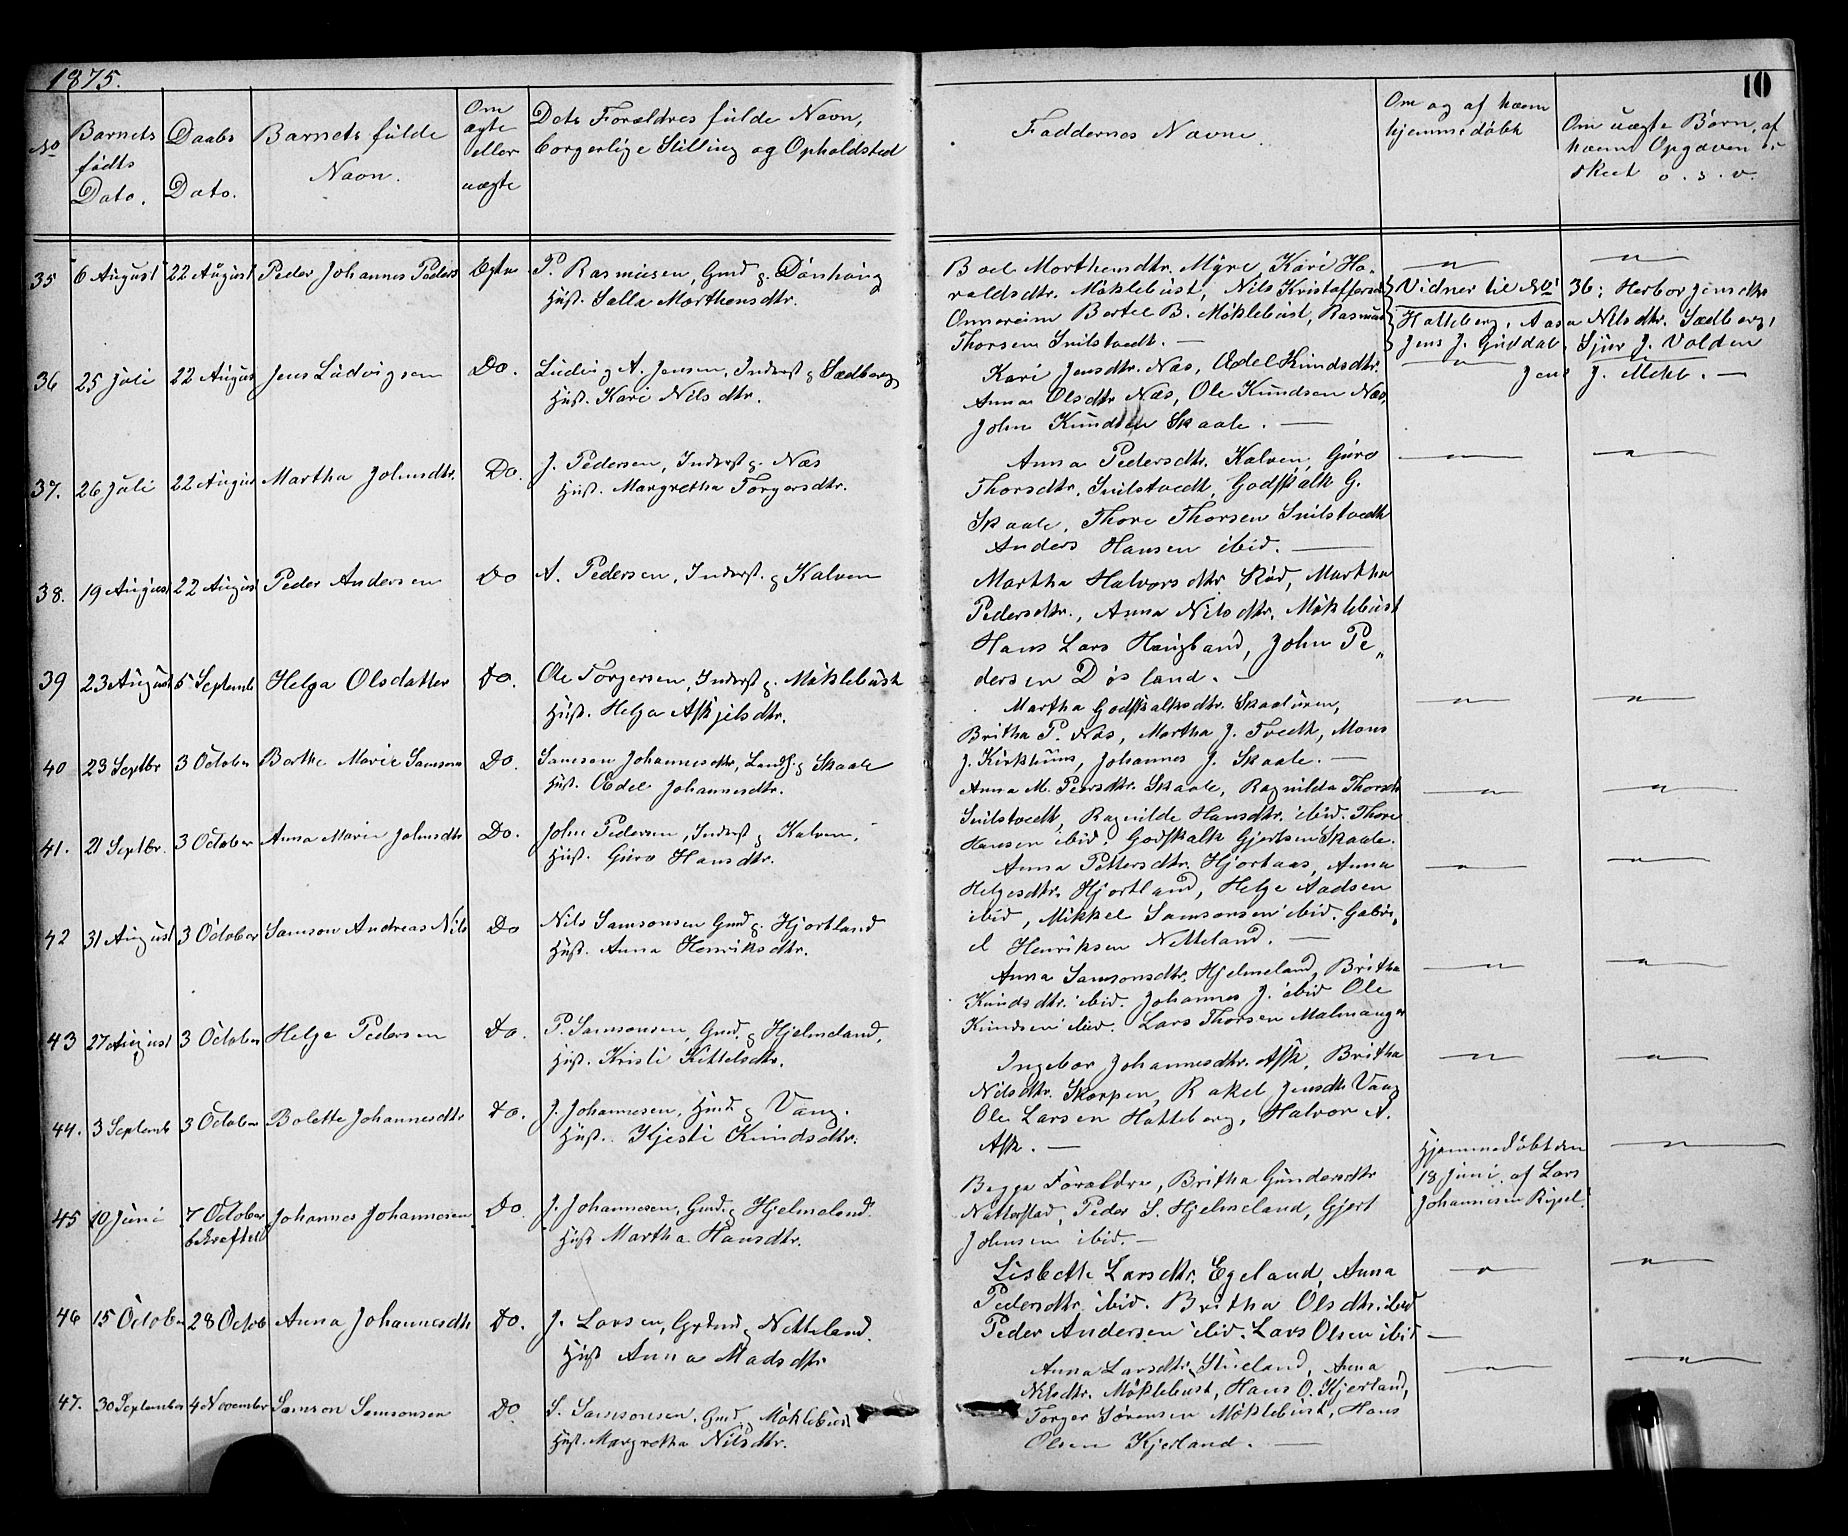 1875.
10
No
Barnets
fødts
Dato.
Daabs
Dato.
Barnets fulde
Navn.
Om
ægte
eller
uægte
Dets Forældres fulde Navn,
borgerlige Stilling og Opholdsted
Faddernes Navne
Om og af hvem
hjemmedøbt
Om uægte Børn, af
hvem Opgaven er
skeet o. s. v.
35 6 August 22 August Peder Johannes Peders Ægte P. Rasmusen, Gmd g. Dønhaug
Hust. Salla Morthensdtr.
Boel Morthensdtr. Myre, Kari Ha-
valdsdtr. Møklebust, Nils Kristoffersen
Omereim Bertel B. Møklebust, Rasmus
Thorsen Snilstvedt. —
Vidner til No 36: Herbor Jensdtr
Hatteberg, Aasa Nilsdtr. Sædberg,
Jens J. Guddal, Sjur J. Valden
Jens J. Mehl. —
36 25 Juli 22 August Jens Ludvigsen Do. Ludvig A. Jensen, Inderst g Sædberg
Hust. Kari Nilsdtr.
Kari Jensdtr. Næs, Ædel Knudsdtr.
Anna Olsdtr Næs, Ole Knudsen Næs,
John Knudsen Skaale. —
37. 26 Juli 22 August Martha Johnsdtr. Do. J. Pedersen, Inderst g. Næs
Hust. Margretha Torgersdtr.
Anna Pedersdtr. Kalven, Guro
Thorsdtr. Snilstvedt, Godskalk G.
Skaale, Thore Thorsen Snilstvedt
Anders Hansen ibid. —
38. 19 August 22 August Peder Andersen Do A. Pedersen, Inderst. g Kalven
Martha Halvorsdtr. Rød, Martha
Pedersdtr., Anna Nilsdtr. Møklebust
Hans Lars Haugland, John Pe„
dersen Døsland. —
39 23 August 5 Septemb Helga Olsdatter Do. Ole Torgersen, Inderst g. Møklebust
Hust. Helga Askjelsdtr.
Martha Godskalksdtr. Skaaluren,
Britha P. Næs, Martha J. Tvedt, Mons
J. Kirkhuus, Johannes J. Skaale. —
40 23 Septbr 3 October Berthe Marie Samson Do. Samson Johannesdtr, Landh. g Skaale
Hust. Ædel Johannesdtr.
Anna M. Peersdtr. Skaale, Ragnilda Thorsdtr
Snilstvedt, Ragnilde Hansdtr. ibid. Thore
Hansen ibid. Godskalk Gjertsen Skaale.
41. 21 Septbr. 3 October Anna Marie Johnsdtr Do. John Pedersen, Inderst g Kalven,
Hust. Guro Hansdtr.
Anna Pettersdtr. Hjortaas, Anna
Helgesdtr. Hjortland, Helge Aadsen
ibid, Mikkel Samsonsen ibid. Gabri-
el Henriksen Netteland. —
42 31 August 3 October Samson Andreas Nils Do Nils Samsonsen Gmd g. Hjortland
Hust. Anna Henriksdtr.
Anna Samsonsdtr. Hjelmeland, Britha
Knudsdtr. ibid. Johannes J. ibid Ole
Knudsen ibid. Lars Thorsen Malmanger
43 27 August 3 October Helge Pedersen Do. P. Samsonsen, Gmd. g Hjelmeland,
Hust. Kristi Kittelsdtr.
Ingebor Johannesdtr. Ask, Britha
Nilsdtr. Skorpen, Rakel Jensdtr Vang
Ole Larsen Hatteberg, Halvor A.
Ask. —
44. 3 Septemb 3 October Bolette Johannesdtr Do. J. Johannesen, Hmd. g Vang.
Hust. Kjesti Knudsdtr.
Begge Forældre, Britha Gundersdtr
Natterstad, Peder S. Hjelmeland, Gjert
Johnsen ibid. —
Hjemmedøbt den
18 Juni af Lars
Johannesen Ripel.
45 10 Juni 7 October
bekræftet
Johannes Johannesen Do. J. Johannesen, Gmd. g Hjelmeland.
Hust Martha Hansdtr.
Lisbeth Larsdtr. Egeland, Anna
Pedersdtr ibid. Britha Olsdtr. ibid
Peder Andersen ibid. Lars Olsen ibid —
46 15 October 28 Octob Anna Johannesdtr Do. J. Larsen, Grdmd g Netteland.
Hust Anna Madsdtr
Anna Larsdtr. Stueland, Anna
Nilsdtr. Møklebust, Hans O. Kjerland,
Torger Sørensen Møklebust, Hans
Olsen Kjerland. —
47. 30 September 4 November Samson Samsonsen Do. S. Samsonsen, Gmd. g Møklebust
Hust. Margretha Nilsdtr.